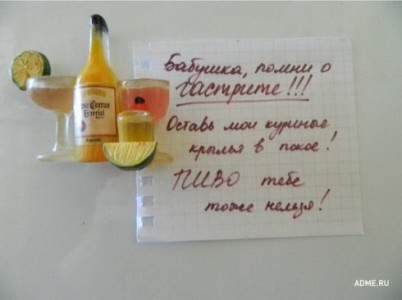 Бабушка, помни о
гастрите!!!
Оставь мои куриные
крылья в покое!
ПИВО тебе
тоже нельзя!
Jose Cuervo
Especial
ADME.RU